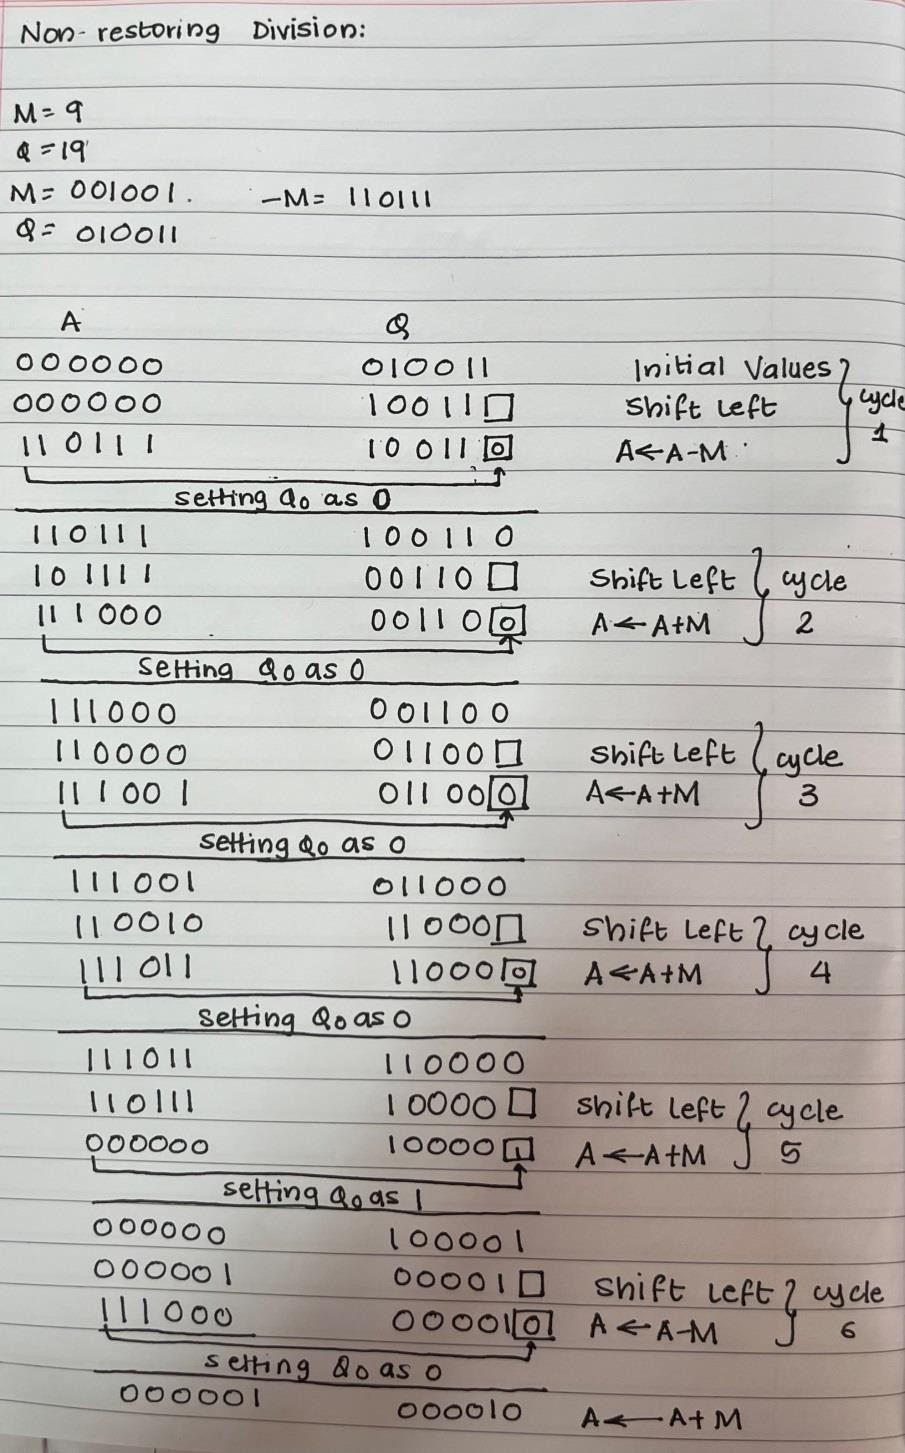 Non-restoring Division:
M = 9
Q = 19
M = 001001. -M = 110111
Q = 010011
A Q
000000 010011 Initial Values
000000 10011□ Shift Left cycle 1
110111 100110 A←A-M
setting Q0 as 0
110111 100110
101111 00110□ Shift Left cycle
111000 001100 A←A+M 2
Setting Q0 as 0
111000 001100
110000 01100□ Shift Left cycle
111001 011000 A←A+M 3
setting Q0 as 0
111001 011000
110010 11000□ Shift Left cycle
111011 110000 A←A+M 4
Setting Q0 as 0
111011 110000
110111 10000□ Shift left cycle
000000 100001 A←A+M 5
setting Q0 as 1
000000 100001
000001 00001□ Shift left cycle
111000 000010 A←A-M 6
setting Q0 as 0
000001 000010 A←A+M